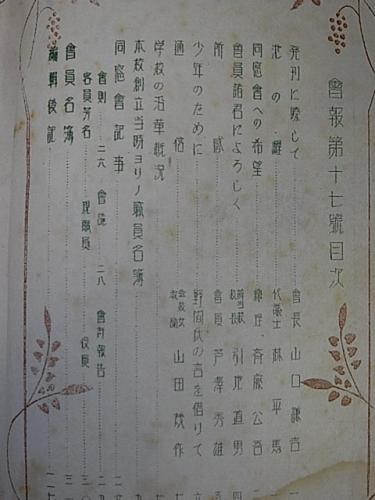 會報第十七號目次
發刊に際して 會長 山口 謙吉
池の 代議士 林 平馬
同窓會への希望 齊藤 公吾
會員諸君によろしく 前校長 引地 直男 四
所感 會員 芦澤 秀雄 五
少年のために 野間氏の言を借りて 六
通信 山田 茂作 七
學校の沿革概況
本校創立當時ヨリノ職員名簿 九
同窓會記事 二六
會則 二六 會誌 二八 會計報告 二九
客員芳名 現職員 役員 三〇
會員名簿 三一
編輯後記 一一七